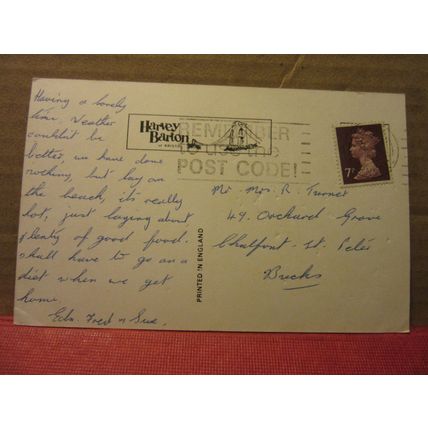 Having a lovely
time, Weather
couldn't be
better, we have done
nothing, but lay on
the beach, its really
hot, just laying about
plenty of good food.
shall have to go on a
diet when we get
home.
Fred n Sue,
Harvey
Barton
of BRISTOL
REMEMBER
TO USE THE
POST CODE!
PRINTED IN ENGLAND
7P
Mr Mrs R. Turner
49, Orchard Grove
Chalfont St. Peter
Bucks